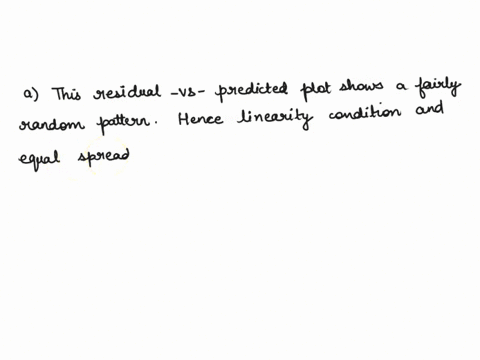 a) This residual -vs- predicted plot shows a fairly
random pattern. Hence linearity condition and
equal spread